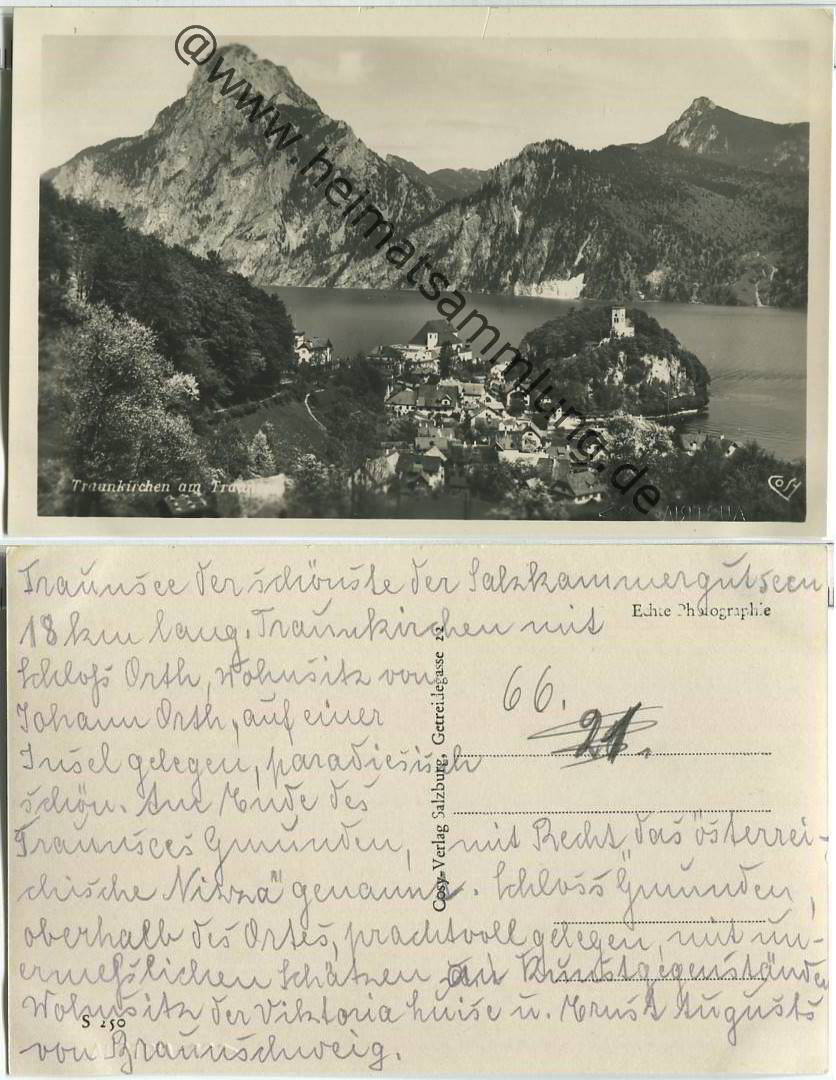 @www.heimatsammlung.de
Traunkirchen am
Cosy
Traunsee der schönste der Salzkammergutseen,
18 km lang. Traunkirchen mit
Echte Photographie
Schloß Orth, Wohnsitz von
66.
Johann Orth, auf einer
21
Insel gelegen, paradiesisch
schön. Am Ende des
Traunsees Gmunden, mit Recht das „österrei-
chische Nizza" genannt. Schloss Gmunden,
oberhalb des Ortes, prachtvoll gelegen, mit un-
ermeßlichen Schätzen an Kunstgegenständen
Wohnsitz der Viktoria Luise u. Ernst Augusts
S 250
von Braunschweig.
Cosy-Verlag Salzburg, Getreidegasse 22